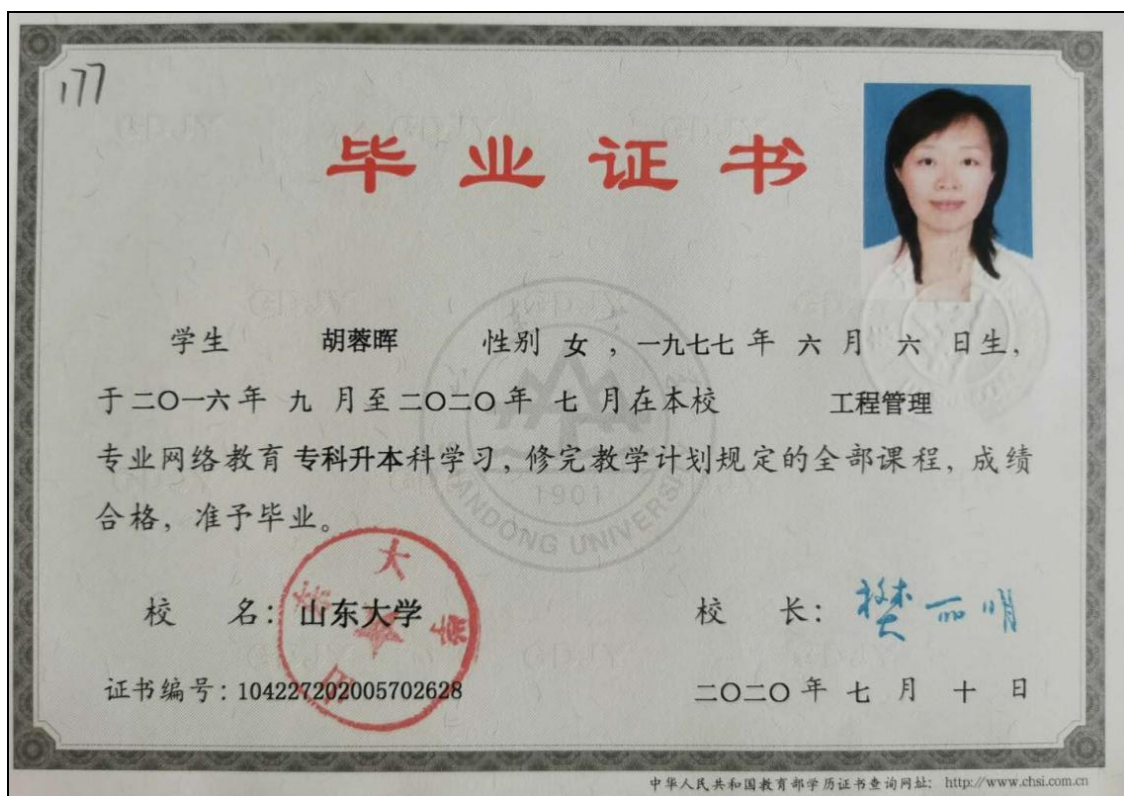 177
毕业证书
学生 胡蓉晖 性别 女 ，一九七七 年 六 月 六 日生，
于 二〇一六 年 九 月至 二〇二〇 年 七 月在本校 工程管理
专业网络教育 专科升本科学习，修完教学计划规定的全部课程，成绩
合格，准予毕业。
1901
SHANDONG UNIVERSITY
校 名：山东大学
校 长：樊丽明
证书编号：104227202005702628
二〇二〇 年 七 月 十 日
中华人民共和国教育部学历证书查询网址： http://www.chsi.com.cn